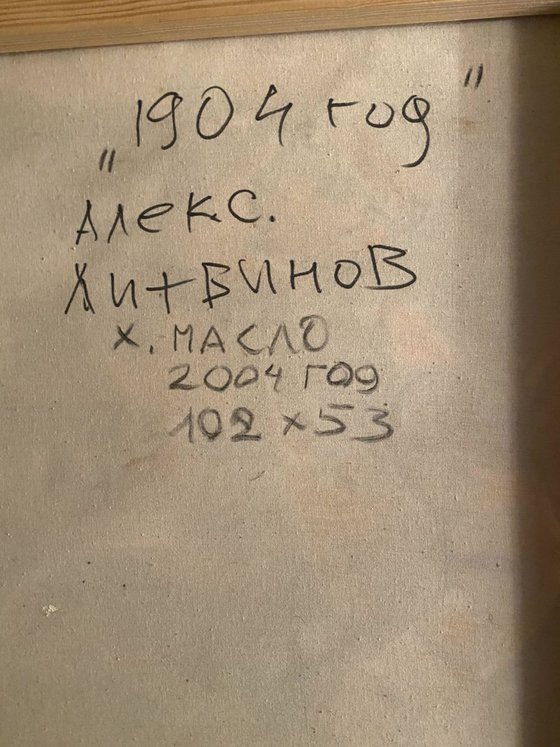 „1904 год"
Алекс.
Литвинов
х. масло
2004 год
102 x 53